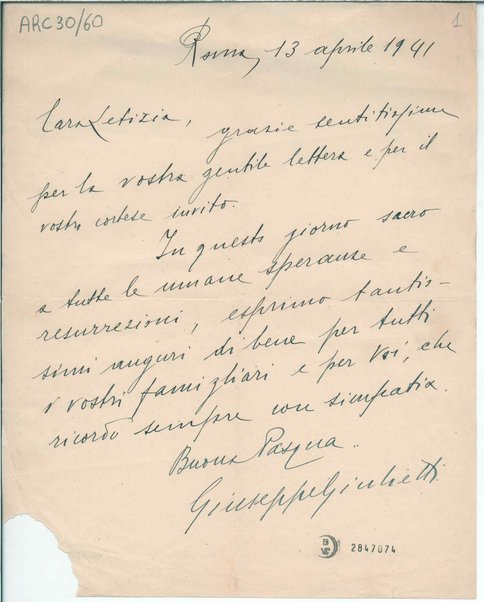 ARC30/60
1
Roma, 13 aprile 1941
Cara Letizia, grazie sentitissime
per la vostra gentile lettera e per il
vostro cortese invito.
In questo giorno sacro
a tutte le umane speranze e
resurrezioni, esprimo tantis-
simi auguri di bene per tutti
i vostri famigliari e per Voi, che
ricordo sempre con simpatia.
Buona Pasqua.
Giuseppe Giulietti
2847074